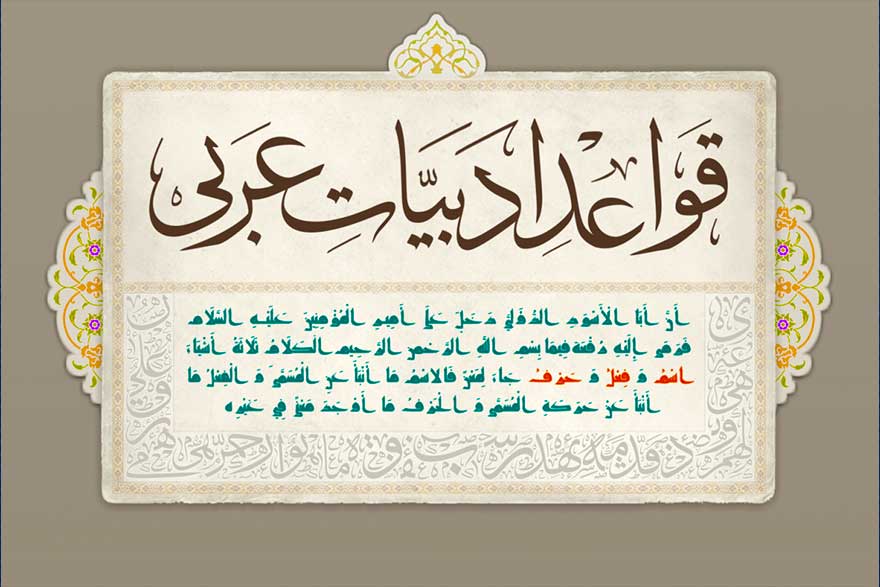 قَوَاعُدِ ادَبیَّاتِ عَرَبی
أَنَّ أَبَا الْأَسْوَدِ الدُّؤَلِيَّ دَخَلَ عَلَى أَمِيرِ الْمُؤْمِنِينَ عَلَيْهِ السَّلَام
فَرَمَى إِلَيْهِ رُقْعَةً فِيهَا بِسْمِ اللَّهِ الرَّحْمَنِ الرَّحِيمِ الْكَلَامُ ثَلَاثَةُ أَشْيَاءَ
اسْمٌ وَ فِعْلٌ وَ حَرْفٌ جَاءَ لِمَعْنًى فَالاسْمُ مَا أَنْبَأَ عَنِ الْمُسَمَّى وَ الْفِعْلُ مَا
أَنْبَأَ عَنْ حَرَكَةِ الْمُسَمَّى وَ الْحَرْفُ مَا أَوْجَدَ مَعْنًى فِي غَيْرِهِ